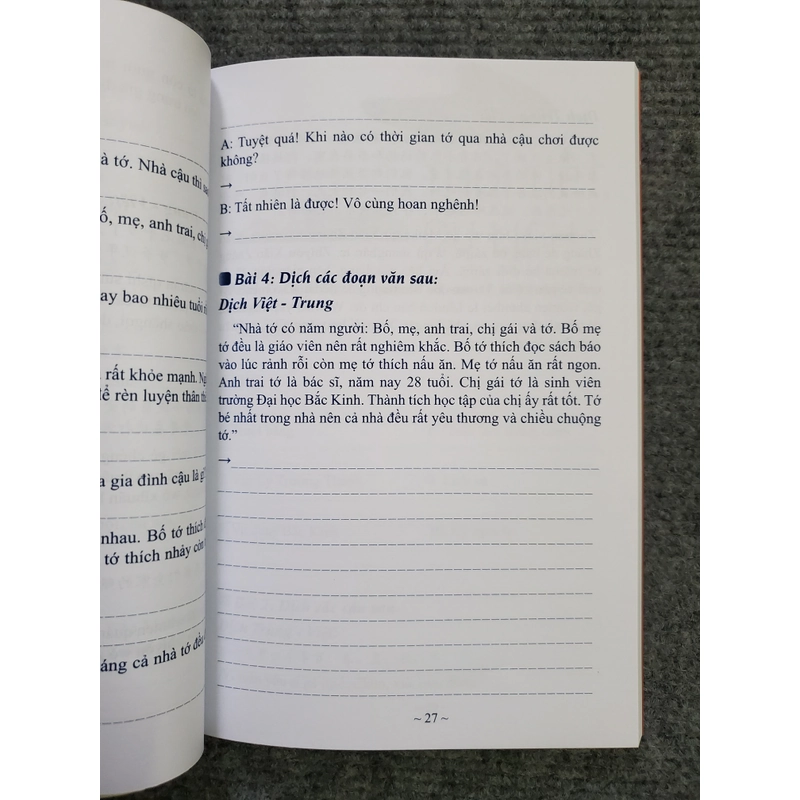 à tớ. Nhà cậu thì
ố, mẹ, anh trai, chị
ay bao nhiêu tuổi
rất khỏe mạnh.
ể rèn luyện thân
a gia đình cậu là
nhau. Bố tớ thích
tớ thích nhảy còn
áng cả nhà tớ đều
A: Tuyệt quá! Khi nào có thời gian tớ qua nhà cậu chơi được
không?
→
B: Tất nhiên là được! Vô cùng hoan nghênh!
→
Bài 4: Dịch các đoạn văn sau:
Dịch Việt - Trung
“Nhà tớ có năm người: Bố, mẹ, anh trai, chị gái và tớ. Bố mẹ
tớ đều là giáo viên nên rất nghiêm khắc. Bố tớ thích đọc sách báo
vào lúc rảnh rỗi còn mẹ tớ thích nấu ăn. Mẹ tớ nấu ăn rất ngon.
Anh trai tớ là bác sĩ, năm nay 28 tuổi. Chị gái tớ là sinh viên
trường Đại học Bắc Kinh. Thành tích học tập của chị ấy rất tốt. Tớ
bé nhất trong nhà nên cả nhà đều rất yêu thương và chiều chuộng
tớ.”
→
~ 27 ~